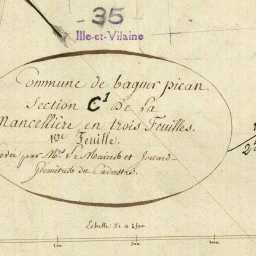 35
Ille-et-Vilaine
Commune de baguer pican
Section C¹ De la
mancellière en trois Feuilles.
1re Feuille.
par Mrs. et
Géomètres du Cadastre.
Echelle de 1 à 2500